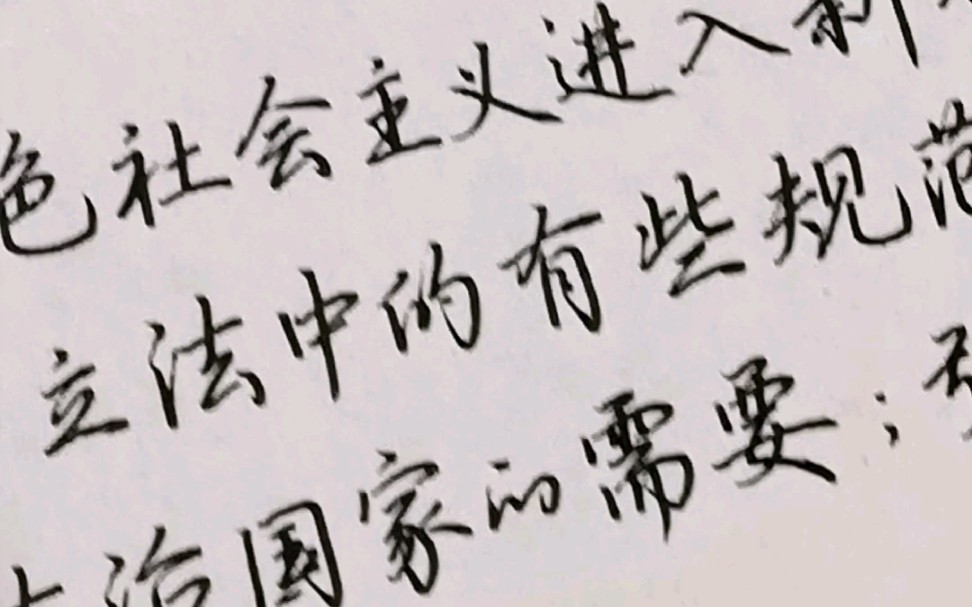 色社会主义进入新
立法中的有些规范
法治国家的需要;